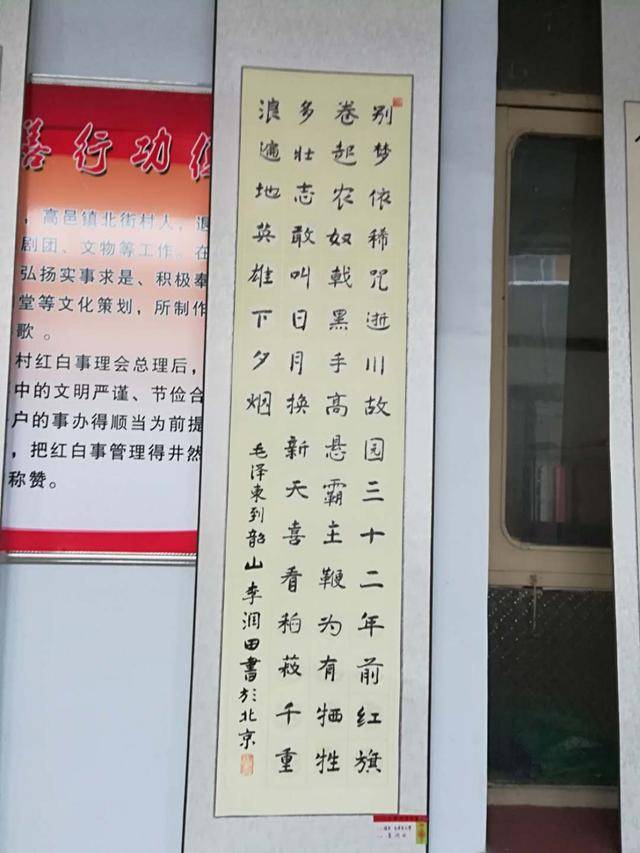 善行功
，高邑镇北街村人，退
剧团、文物等工作。在
弘扬实事求是、积极奉
堂等文化策划，所制作
歌 。
村红白事理会总理后，
中的文明严谨、节俭合
户的事办得顺当为前提
，把红白事管理得井然
称赞。
别梦依稀咒逝川故园三十二年前红旗
卷起农奴戟黑手高悬霸主鞭为有牺牲
多壮志敢叫日月换新天喜看稻菽千重
浪遍地英雄下夕烟
毛泽東到韶山李润田書於北京